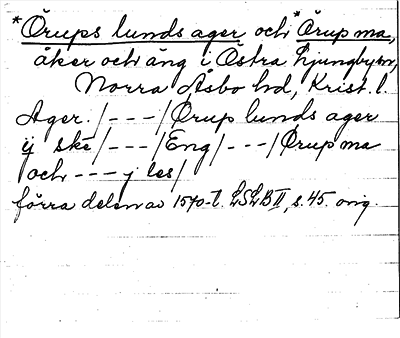 *Örups lunds ager och *Örup ma,
åker och äng i Östra Ljungby sn,
Norra Åsbo hd, Krist. l.
Ager. /---/ Örup lunds ager
ij ske /---/ Eng /---/ Örup ma
och --- j les /
förra delen av 1570-t. LSLB II, s. 45. orig.